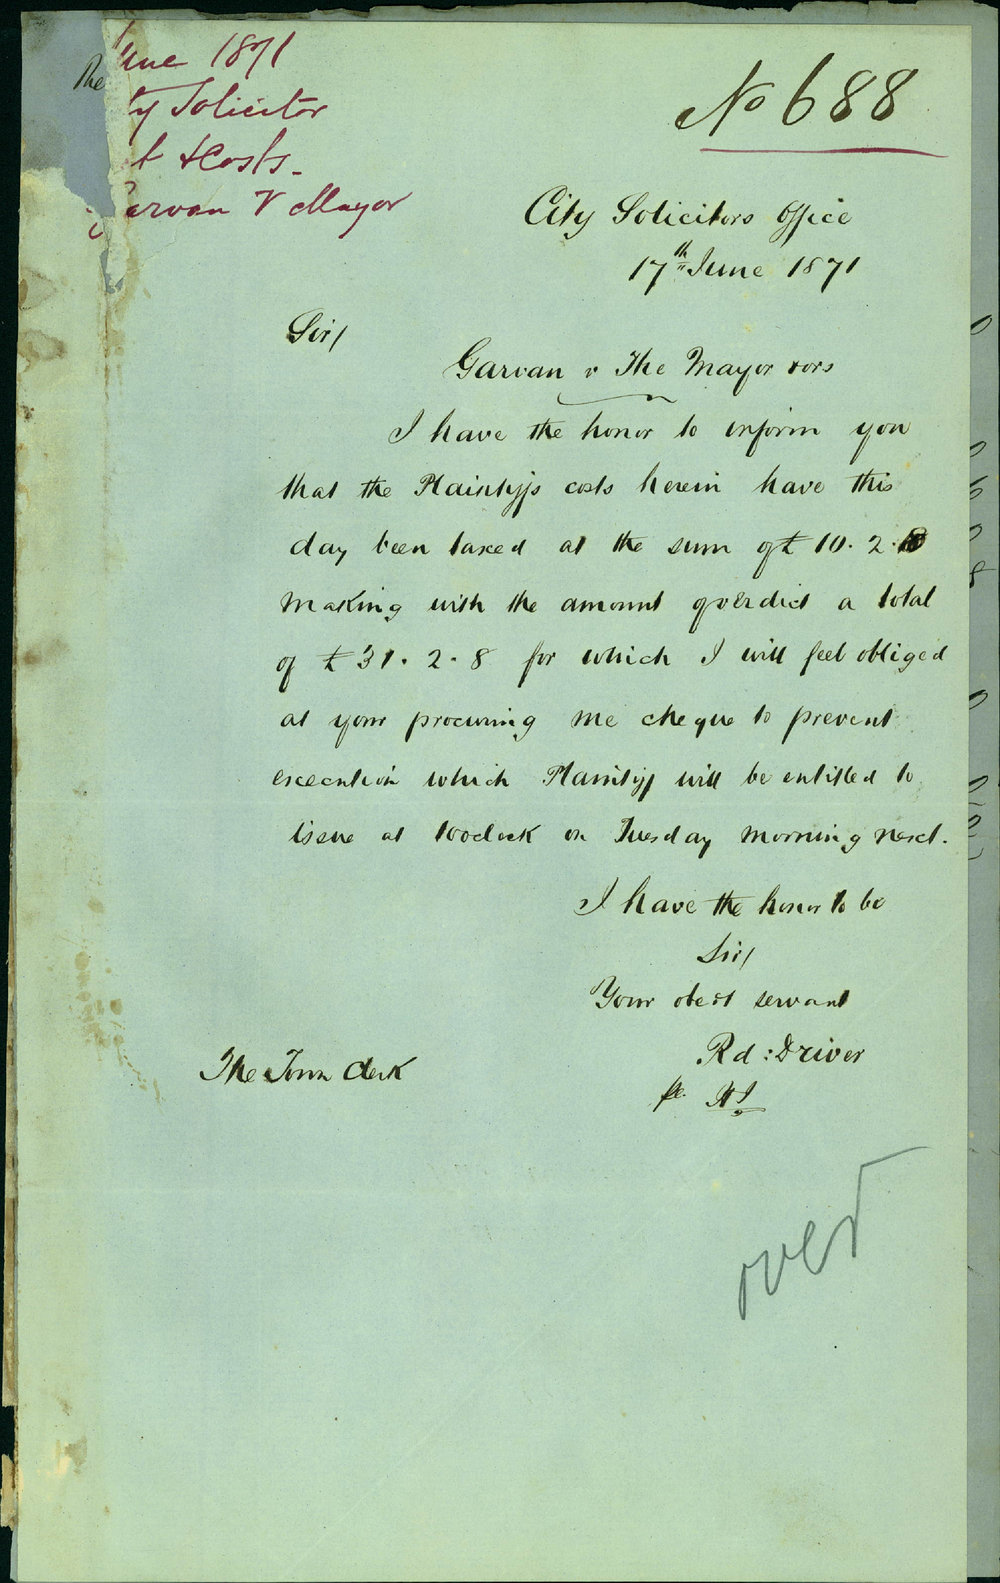 The
une 1871
ty Solicitor
t & Costs.
Garvan V Mayor
No 688
City Solicitors Office
17th June 1871
Sir/
Garvan v The Mayor & ors
I have the honor to inform you
that the Plaintiffs costs herein have this
day been taxed at the sum of £ 10. 2. 8
making with the amount of verdict a total
of £ 31. 2. 8 for which I will feel obliged
at your procuring me cheque to prevent
execution which Plaintiff will be entitled to
issue at 10 oclock on Tuesday morning next.
I have the honor to be
Sir/
Your obedt servant
Rd: Driver
The Town Clerk
over